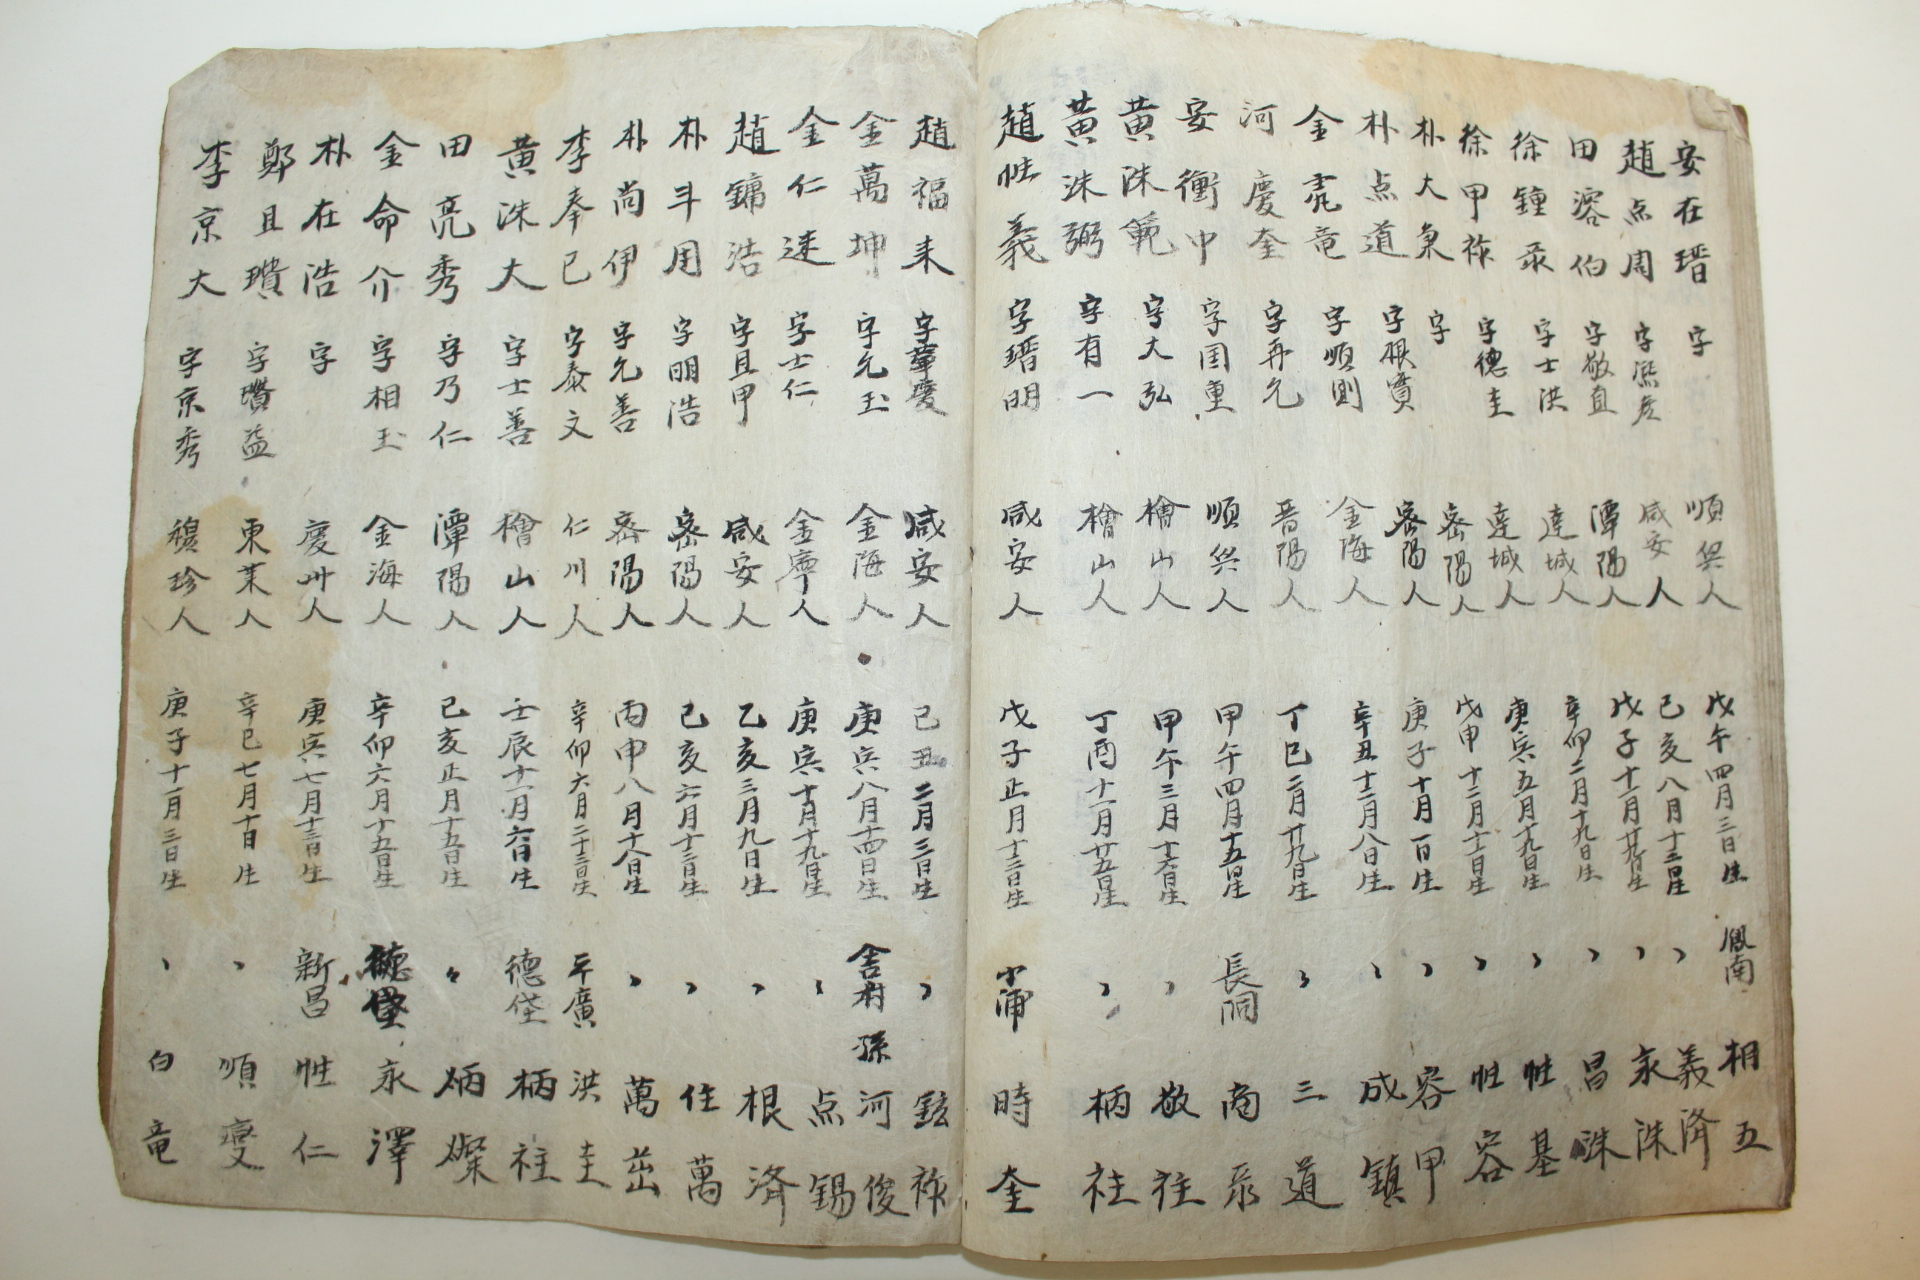 安在瑨 字 順興人 戊午四月三日生 鳳南 相五
趙点周 字 咸安人 己亥八月十三日生 〃 義済
田溶伯 字敬直 潭陽人 戊子十一月廿九日生 〃 永洙
徐鍾录 字士洪 達城人 辛卯二月十九日生 〃 昌洙
徐甲祚 字德圭 達城人 庚寅五月十九日生 〃 性基
朴大 字 密陽人 戊申十二月十二日生 〃 性容
朴点道 字根實 密陽人 庚子十月一日生 〃 容甲
金亮竜 字順則 金海人 辛丑十二月八日生 〃 成鎮
河慶奎 字再允 晋陽人 丁巳二月廿九日生 〃 三道
安衡中 字国重 順興人 甲午四月十五日生 長洞 商录
黄洙範 字大弘 檜山人 甲午三月十六日生 〃 敬往
黄洙弼 字有一 檜山人 丁酉十一月廿五日生 〃 柄社
趙性義 字瑨明 咸安人 戊子正月十三日生 小浦 時奎
趙福来 字慶 咸安人 己丑二月三日生 〃 鉉祚
金萬坤 字允玉 金海人 庚寅八月十四日生 舎村 孫 河俊
金仁逑 字士仁 金寧人 庚寅十月十九日生 〃 点錫
趙鏞浩 字且甲 咸安人 乙亥三月九日生 〃 根済
朴斗用 字明浩 密陽人 己亥六月十三日生 〃 住萬
朴尚伊 字允善 密陽人 丙申八月十八日生 〃 萬茁
李奉己 字泰文 仁川人 辛卯六月二十三日生 平廣 洪圭
黄洙大 字士善 檜山人 壬辰十一月六日生 德垡 柄社
田亮秀 字乃仁 潭陽人 己亥正月十五日生 〃 炳燦
金命介 字相玉 金海人 辛卯六月十五日生 德垡 永澤
朴在浩 字 慶州人 庚寅七月十三日生 新昌 性仁
鄭且瓚 字瓚益 東萊人 辛巳七月十日生 〃 順燮
李京大 字京秀 穆珍人 庚子十一月三日生 〃 白竜